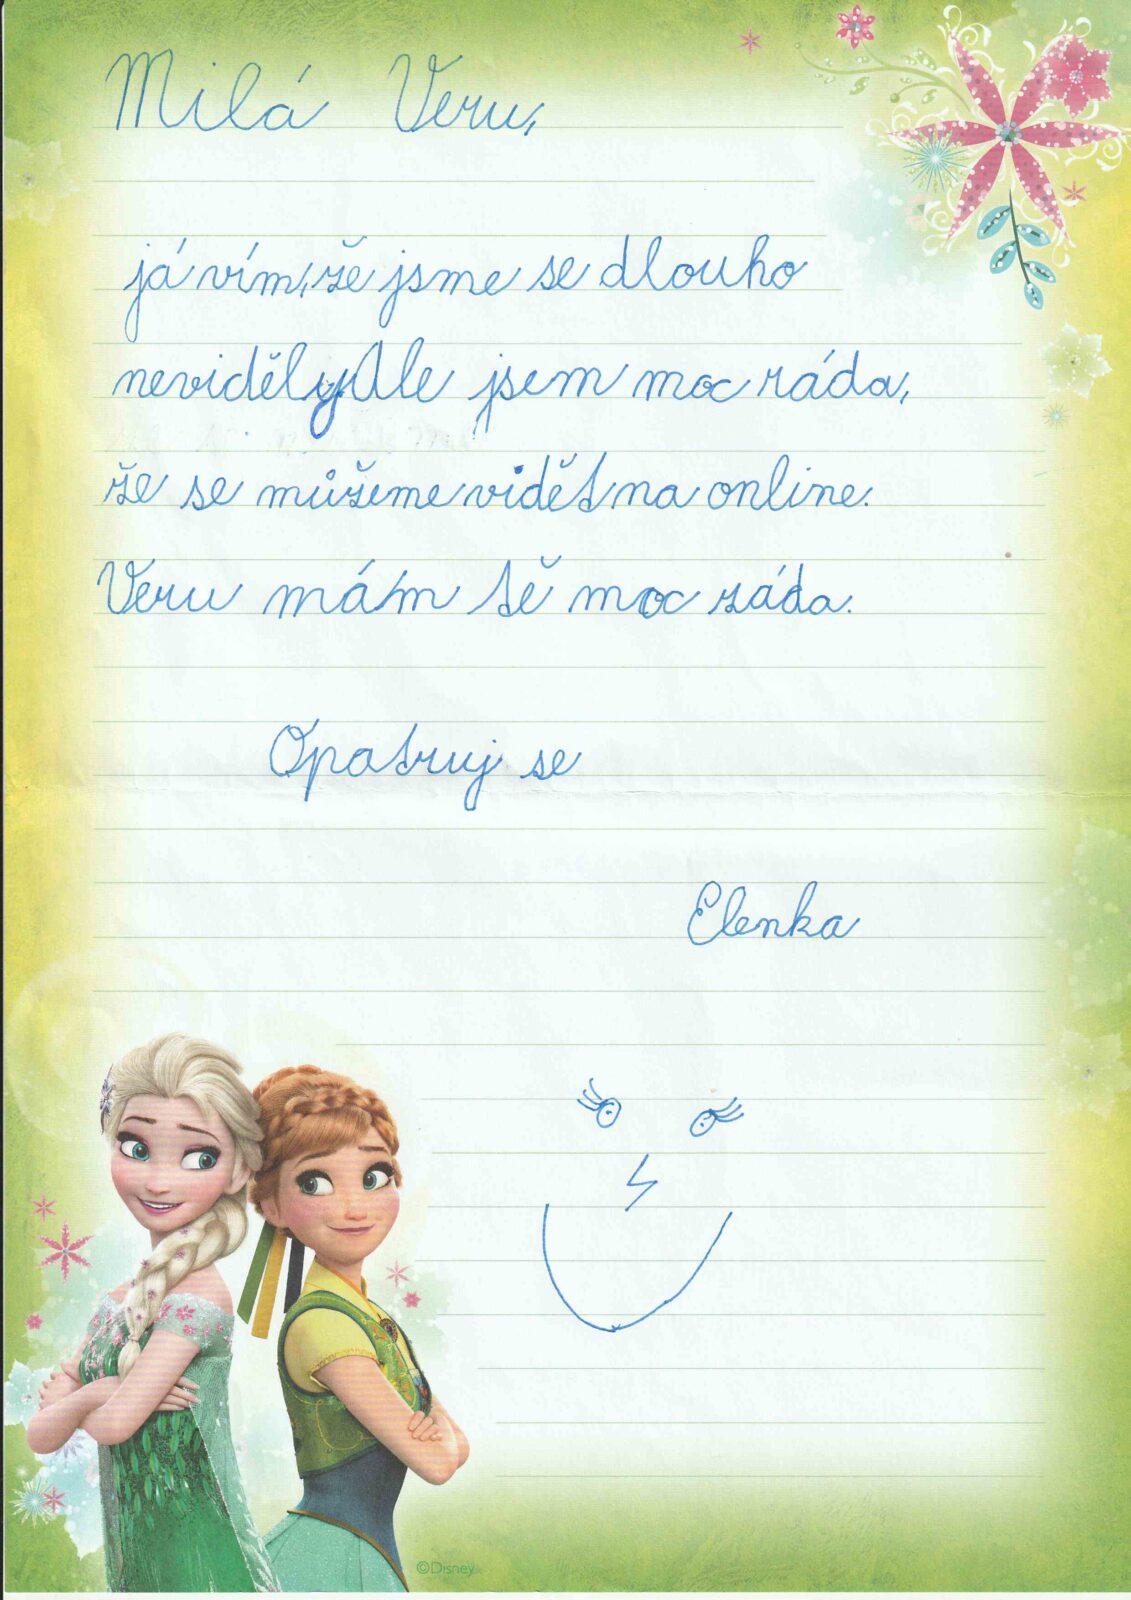 Milá Veru,
já vím, že jsme se dlouho
nevidělyAle jsem moc ráda,
že se můžeme vidět na online.
Veru mám tě moc ráda.
Opatruj se
Elenka
©Disney